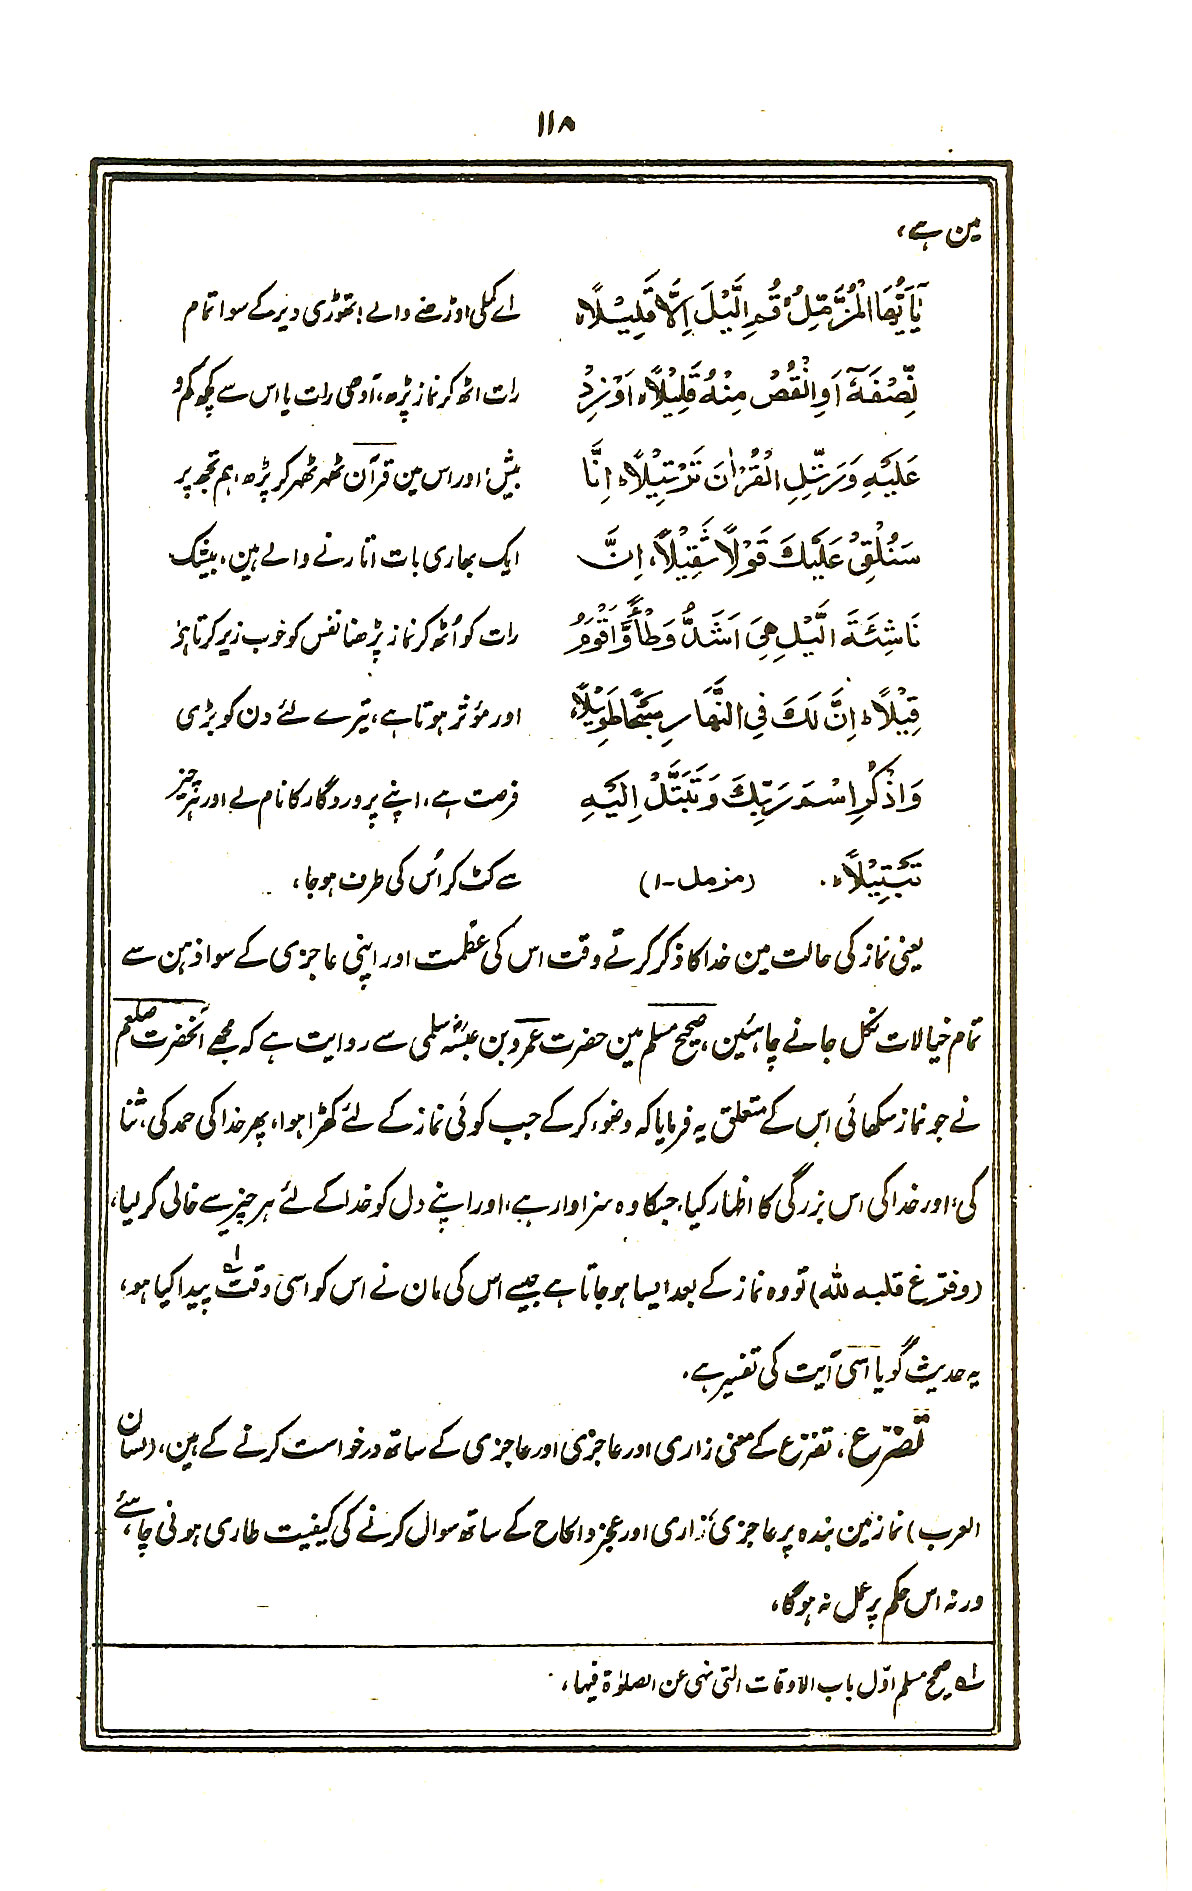 ۱۱۸
مین ہے،
يٰۤاَيُّهَا الْمُزَّمِّلُ قُمِ الَّيْلَ اِلَّا قَلِيْلًاہ
اے کملی اوڑھنے والے! تھوڑی دیر کے سوا تمام
نِّصْفَهٗۤ اَوِ انْقُصْ مِنْهُ قَلِيْلًاہ اَوْ زِدْ
رات اٹھ کر نماز پڑھ، آدھی رات یا اس سے کچھ کم و
عَلَيْهِ وَرَتِّلِ الْقُرْاٰنَ تَرْتِيْلًاہ اِنَّا
بیش، اور اس مین قرآن ٹھہر ٹھہر کر پڑھ، ہم تجھ پر
سَنُلْقِيْ عَلَيْكَ قَوْلًا ثَقِيْلًاہ، اِنَّ
ایک بھاری بات اتارنے والے ہین، بیشک
نَاشِئَةَ الَّيْلِ هِيَ اَشَدُّ وَطْأً وَّاَقْوَمُ
رات کو اُٹھ کر نماز پڑھنا نفس کو خوب زیر کرتا ہو
قِيْلًاہ اِنَّ لَكَ فِي النَّهَارِ سَبْحًا طَوِيْلًاہ
اور مؤثر ہوتا ہے، تیرے لئے دن کو بڑی
وَاذْكُرِ اسْمَ رَبِّكَ وَتَبَتَّلْ اِلَيْهِ
فرصت ہے، اپنے پروردگار کا نام لے اور ہر چیز
تَبْتِيْلًاہ. (مزمل-۱)
سے کٹ کر اُس کی طرف ہو جا،
یعنی نماز کی حالت مین خدا کا ذکر کرتے وقت اس کی عظمت اور اپنی عاجزی کے سوا ذہن سے
تمام خیالات نکل جانے چاہئین، صحیح مسلم مین حضرت عمرو بن عبسہؓ سلمی سے روایت ہے کہ مجھے آنحضرت صلعم
نے جو نماز سکھائی اس کے متعلق یہ فرمایا کہ وضو، کر کے جب کوئی نماز کے لئے کھڑا ہوا، پھر خدا کی حمد کی، ثنا
کی، اور خدا کی اس بزرگی کا اظہار کیا، جسکا وہ سزاوار ہے، اور اپنے دل کو خدا کے لئے ہر چیز سے خالی کر لیا،
(وفرّغ قلبہ للہ) تو وہ نماز کے بعد ایسا ہو جاتا ہے جیسے اس کی مان نے اس کو اسی وقت پیدا کیا ہو،۱؎
یہ حدیث گویا اسی آیت کی تفسیر ہے.
تضرّع، تضرّع کے معنی زاری اور عاجزی اور عاجزی کے ساتھ درخواست کرنے کے ہین، (لسان
العرب) نماز مین بندہ پر عاجزی، زاری اور عجز و الحاح کے ساتھ سوال کرنے کی کیفیت طاری ہونی چاہئے،
ورنہ اس حکم پر عمل نہ ہوگا،
۱؎ صحیح مسلم اوّل باب الاوقات التی نہی عن الصلوٰة فیہا،